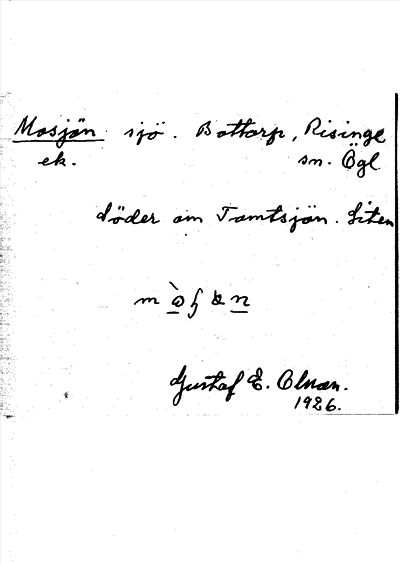 Mosjön sjö. Bottorp, Risinge
ek. sn. Ögl
söder om Tomtsjön. liten
Gustaf E. Olson.
1926.